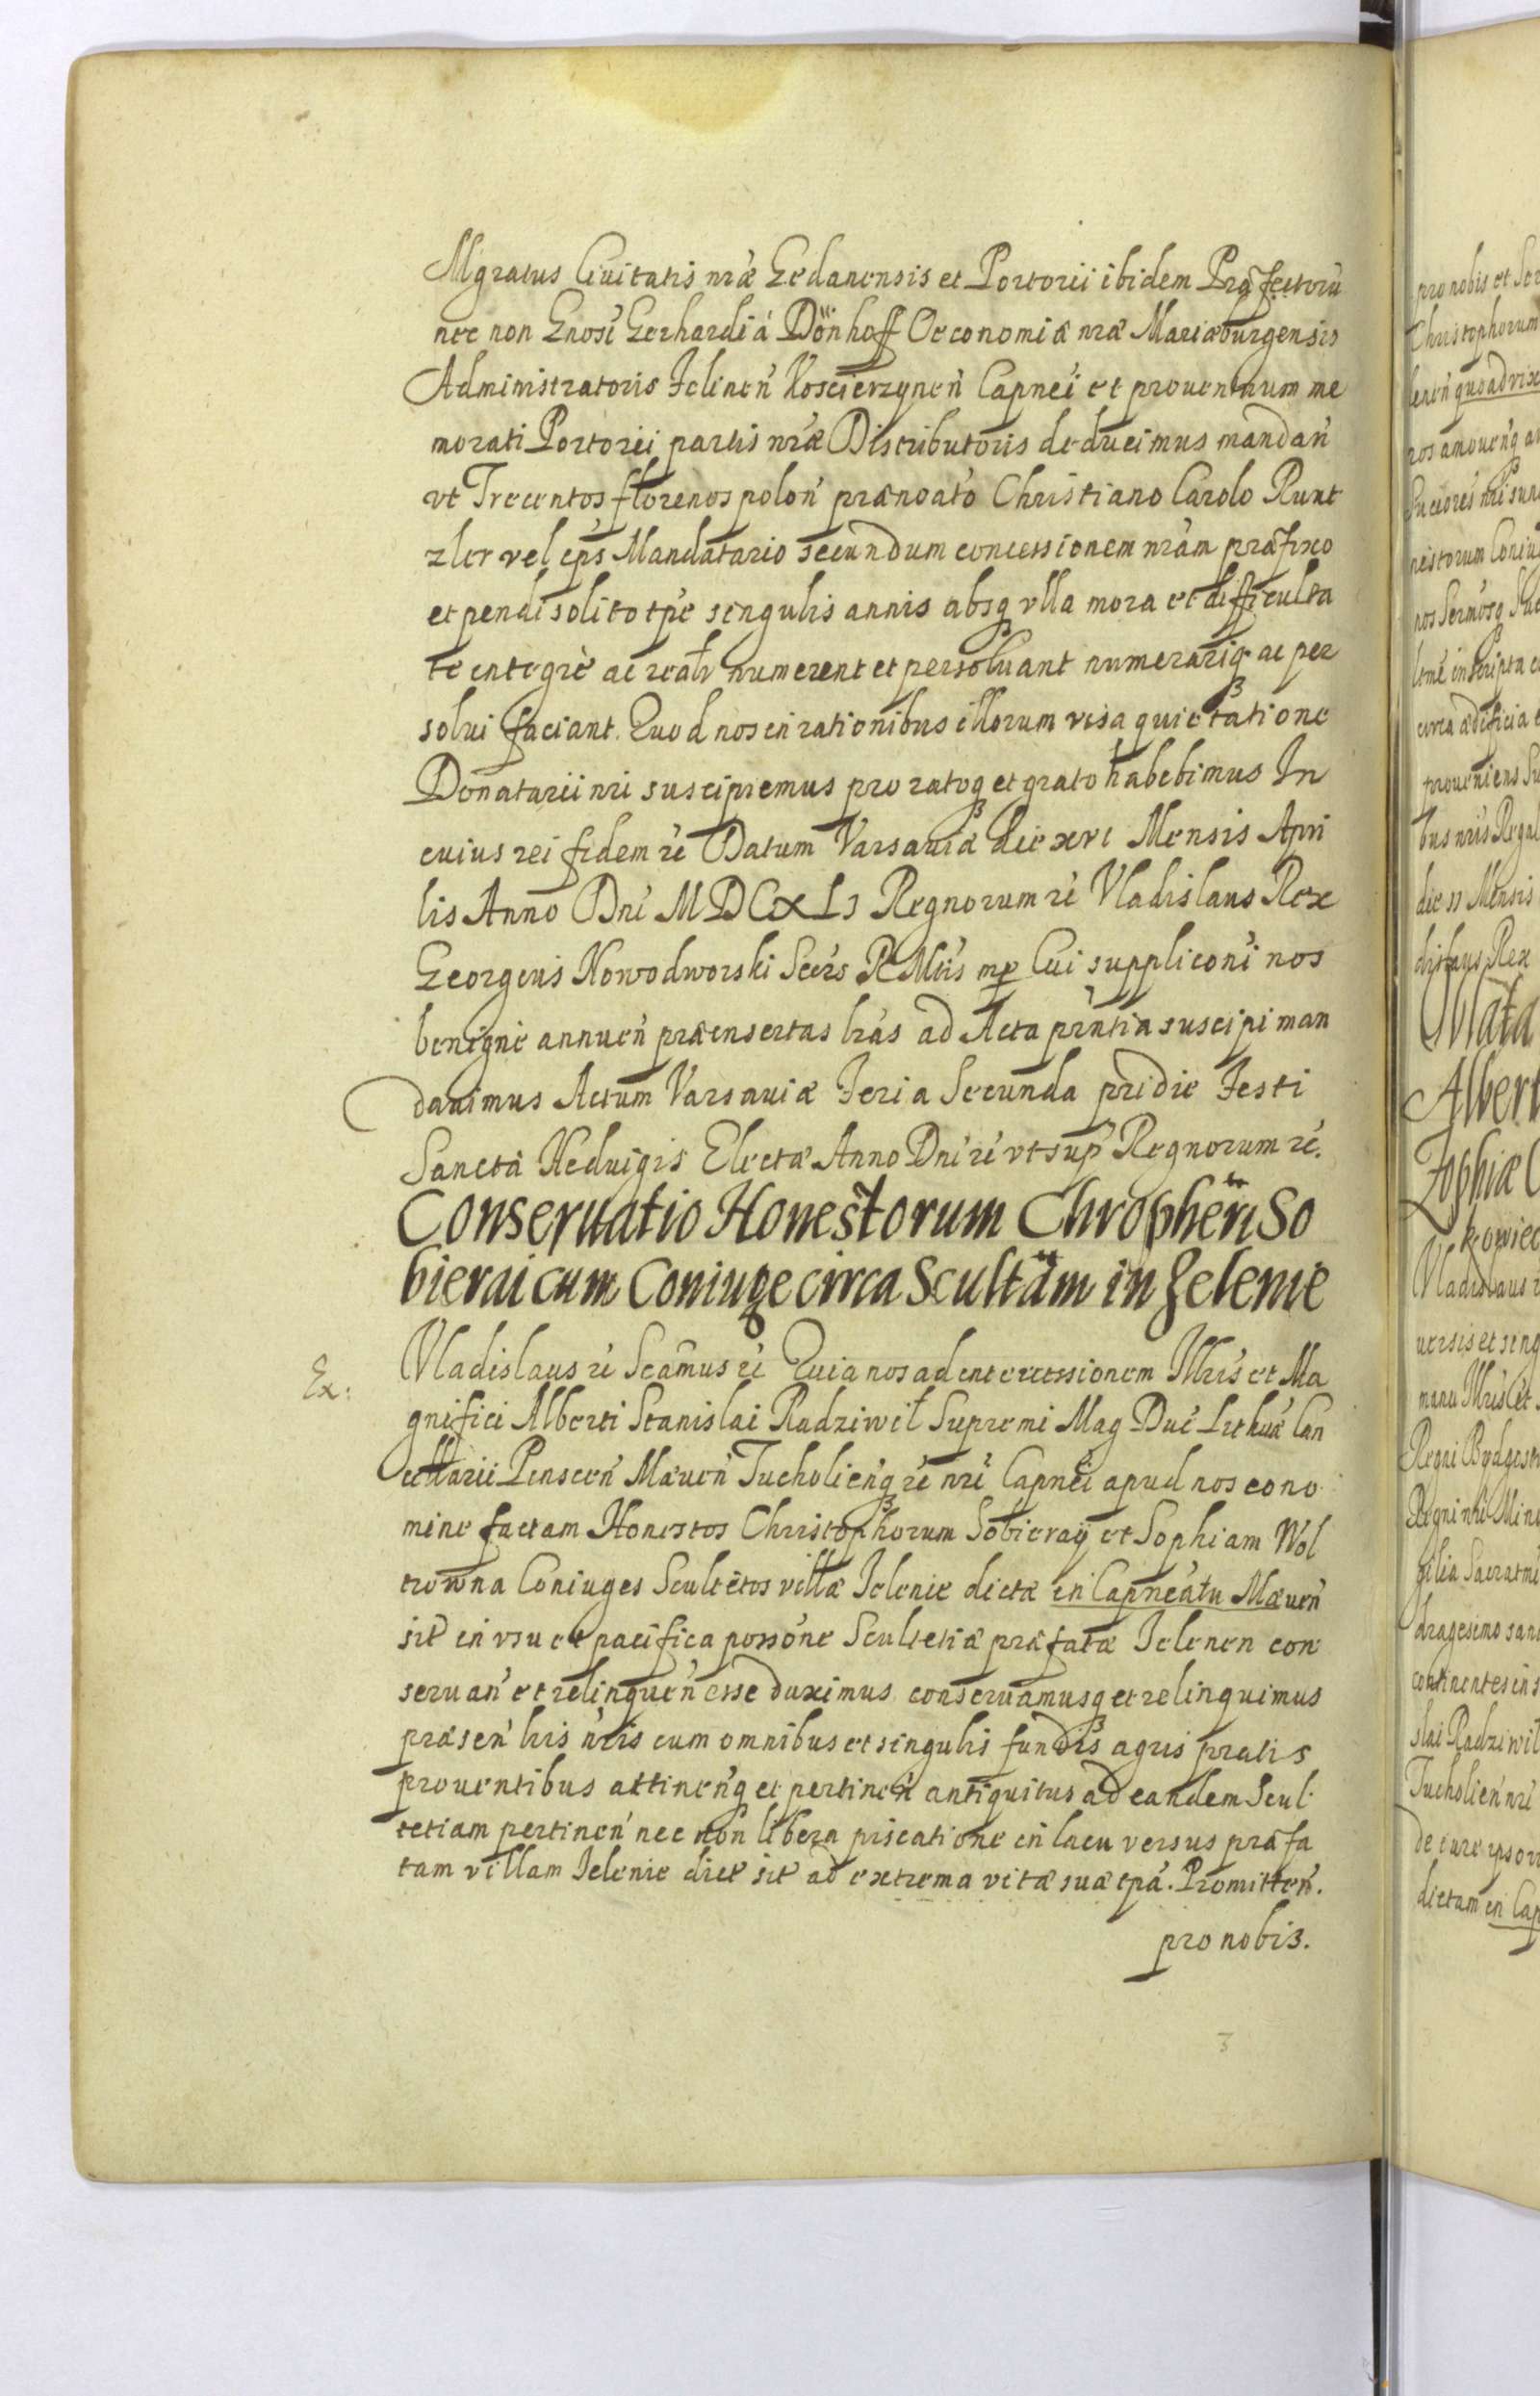 Mgratus Ciuitatis nræ Gedanensis et Portorii ibidem Præfectorū
nec non Gnosi Gerhardi á Dönhoff Oeconomiæ nræ Mariæburgensis
Administratoris Felinen Koscierzynen Capnei et prouentuum me
morati Portorii partis nræ Distributoris deducimus mandan
vt Trecentos florenos polon prænoato Christiano Carolo Runt
zler vel eps Mandatario secundum concessionem nram præfixo
et pendi solito tpe singulis annis absq vlla mora et difficulta
te integrè ac realr numerent et persoluant numerariq ac per
solui faciant. Quod nos in rationibus illorum visa quietatione
Donatarii nri suscipiemus pro ratoq et grato habebimus In
cuius rei fidem rê Datum Varsauiæ die xvi Mensis Apri
lis Anno Dni MDCXLI Regnorum rê Vladislaus Rex
Georgius Nowodworski Secrs R Mtis mp Cui suppliconi nos
benigne annuen præinsertas lras ad Acta prntia suscipi man
dauimus Actum Varsauiæ Feria Secunda pridie Festi
Sanctæ Heduigis Electæ Anno Dni rê vt sup Regnorum rê.
Conseruatio Honestorum Chrophen So
bierai cum Coniuge circa Scultam in Zelenie
Ex:
Vladislaus rê Scamus rê Quia nos ad intercessionem Illris et Ma
gnifici Alberti Stanislai Radziwił Supremi Mag Duc Lithuæ Can
cellarii Pinscen Mæuen Tucholienq rê nri Capnei apud nos eo no
mine factam Honestos Christophorum Sobieray et Sophiam Wol
trowna Coniuges Scultetos villæ Jelenie dictæ in Capneatu Mæuen
sit in vsu et pacifica possone Scultetiæ præfatæ Jelenen con
seruan et relinquen esse duximus conseruamusq et relinquimus
præsen lris nris cum omnibus et singulis fundis agris pratis
prouentibus attinenq et pertinen antiquitus ad eandem Scul
tetiam pertinen nec non libera piscatione in lacu versus præfa
tam villam Jelenie dict sit ad extrema vitæ suæ tpa. Promitten.
pro nobis.
3
pro nobis et
Christophorum
lenen quoad vix
Oblata
Albert
Zophiæ C
kowiec
Vladislaus
manu Illris et
Regni Bydgost
continentes in s
slai Radziwił
Tucholien nri
de iure ipsor
dictam in Cap